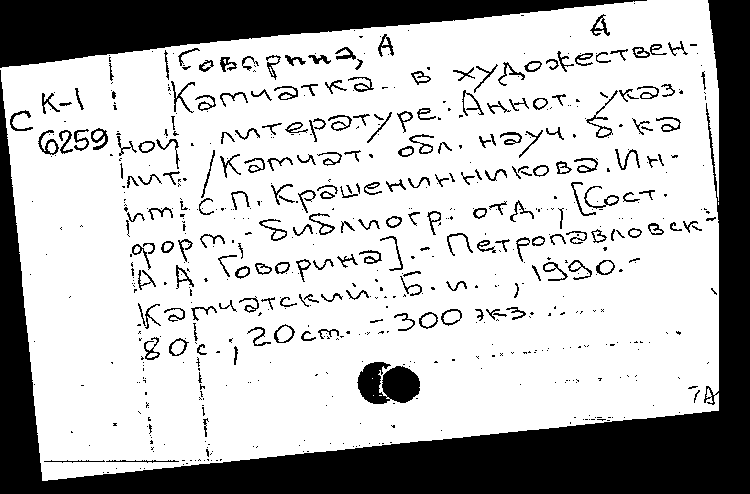 А
Говорина, А
К-1
С
6259
Камчатка в художествен-
ной литературе: Аннот. указ.
лит. /Камчат. обл. науч. б-ка
им. С.П. Крашенинникова. Ин-
форм.,- библиогр. отд.; [Сост.
А.А. Говорина].- Петропавловск-
Камчатский: Б.и., 1990.-
80с.; 20см. - 300 экз.